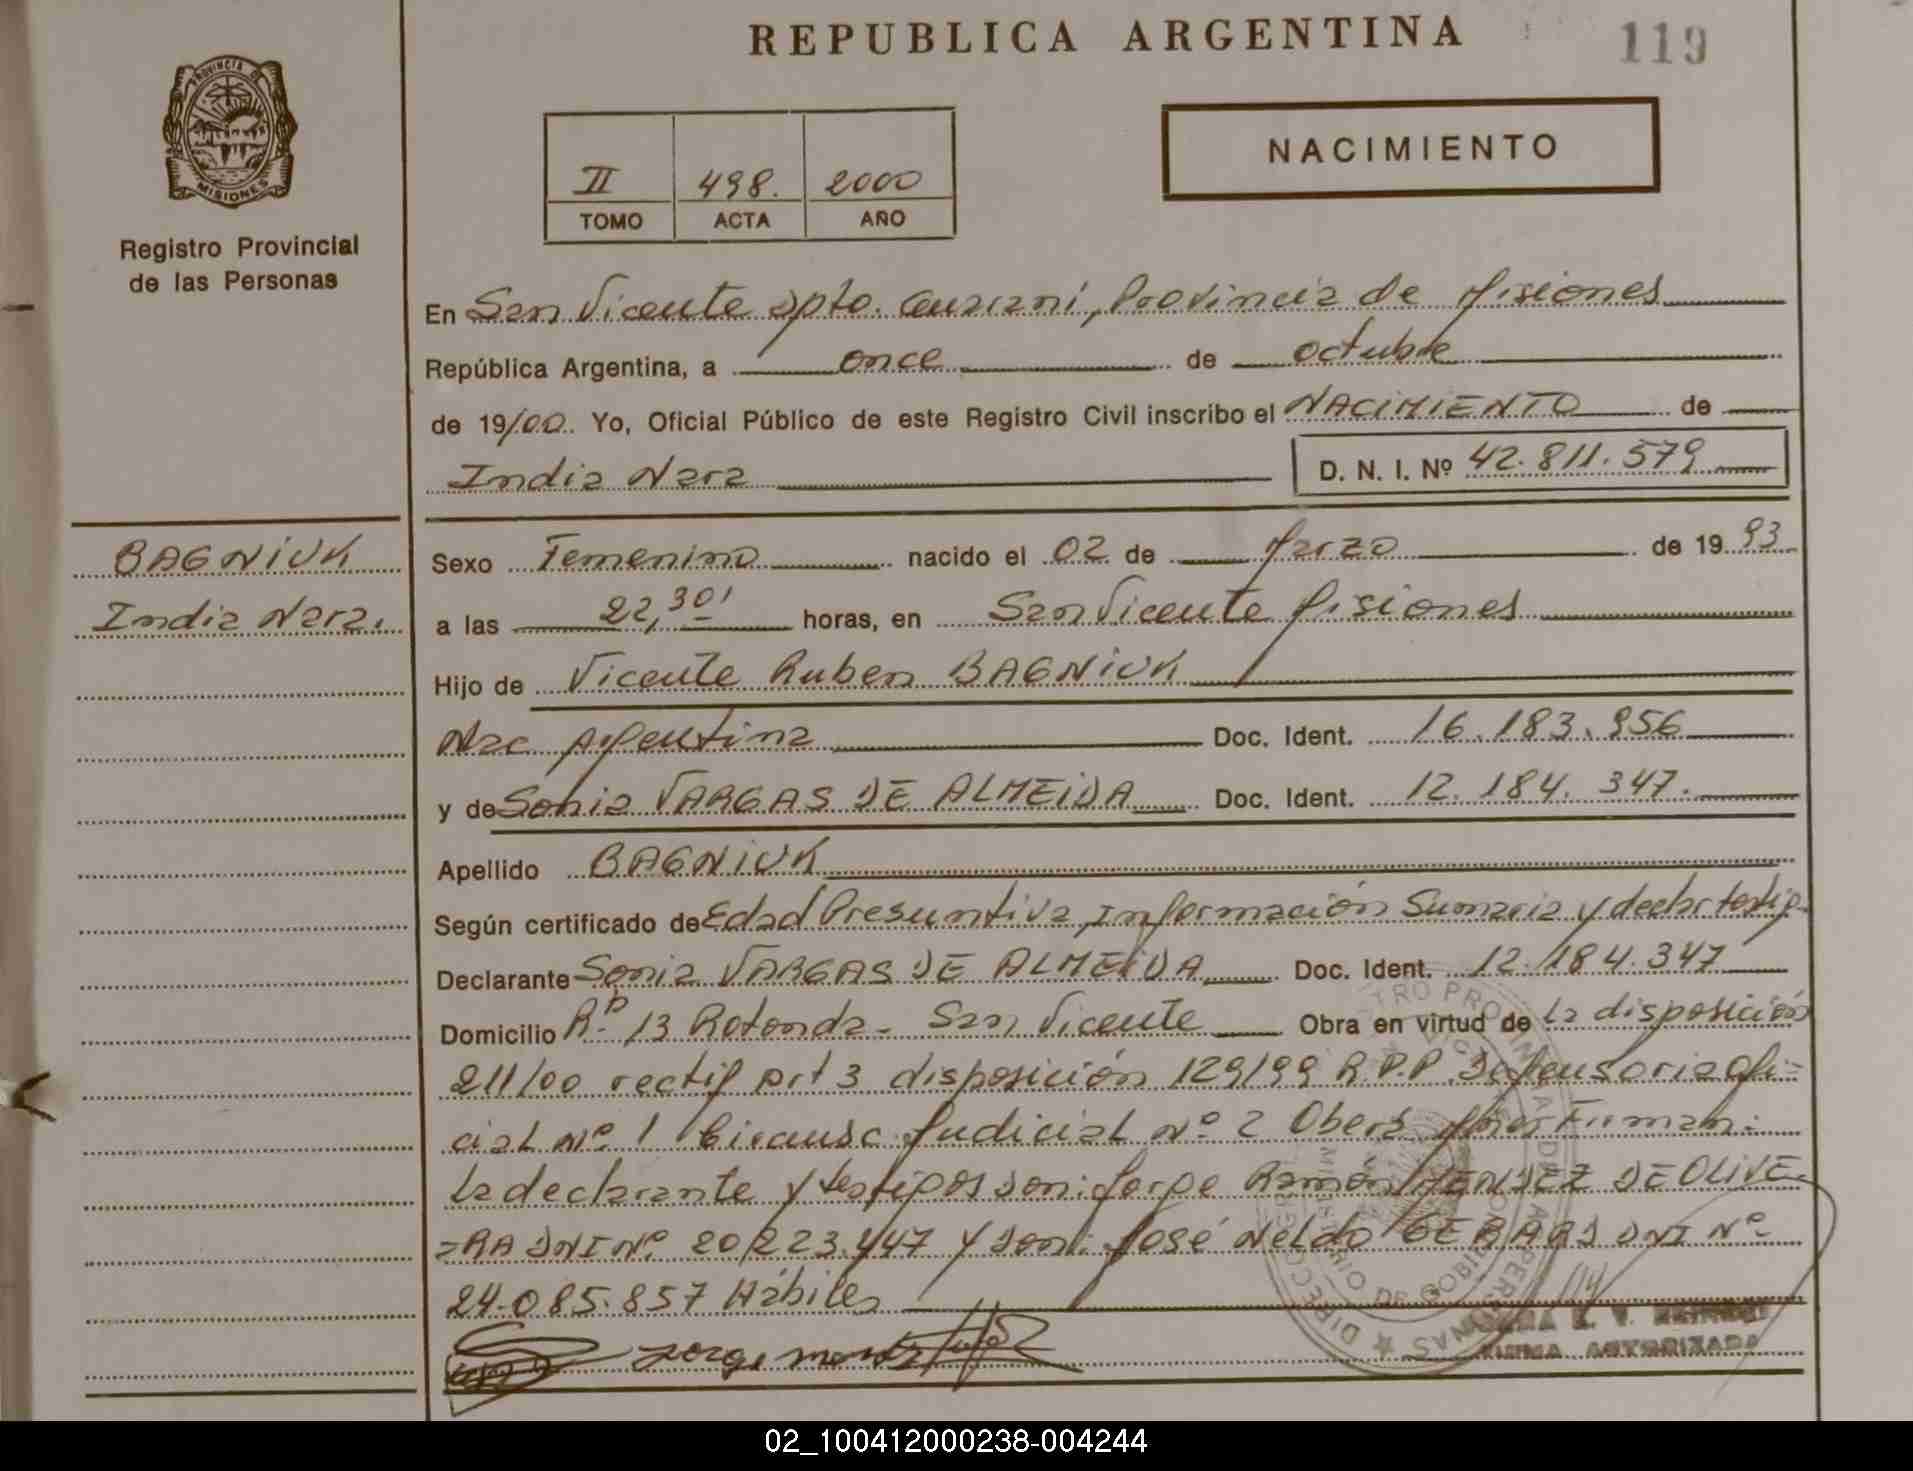 REPUBLICA ARGENTINA
119
PROVINCIA DE
MISIONES
Registro Provincial
de las Personas
NACIMIENTO
II 498. 2000
TOMO ACTA AÑO
En San Vicente Dpto. Guarani, Provincia de Misiones
República Argentina, a once de octubre
de 19/00. Yo, Oficial Público de este Registro Civil inscribo el NACIMIENTO de
India Nara D. N. I. Nº 42.811.579
BAGNIUK
India Nara.
Sexo Femenino nacido el 02 de Marzo de 1993
a las 22,30' horas, en San Vicente Misiones
Hijo de Vicente Ruben BAGNIUK
Nac Argentina Doc. Ident. 16.183.956
y de Sonia VARGAS DE ALMEIDA Doc. Ident. 12.184.347.
Apellido BAGNIUK
Según certificado de Edad Presuntiva, Información Sumaria y declar testig.
Declarante Sonia VARGAS DE ALMEIDA Doc. Ident. 12.184.347
Domicilio R.p 13 Rotonda - San Vicente Obra en virtud de la disposición
211/00 rectif art 3 disposición 129/99 R.P.P. Defensoria Ofi=
cial Nº 1 Circunsc Judicial Nº 2 Obera Mnes Firman:
la declarante y testigos son: Jorge Ramón MENDEZ DE OLIVE
=RA DNI Nº 20.223.447 y don: José Neldo DNI Nº
24.085.857 Hábiles
Jorge
FIRMA AUTORIZADA
02_100412000238-004244